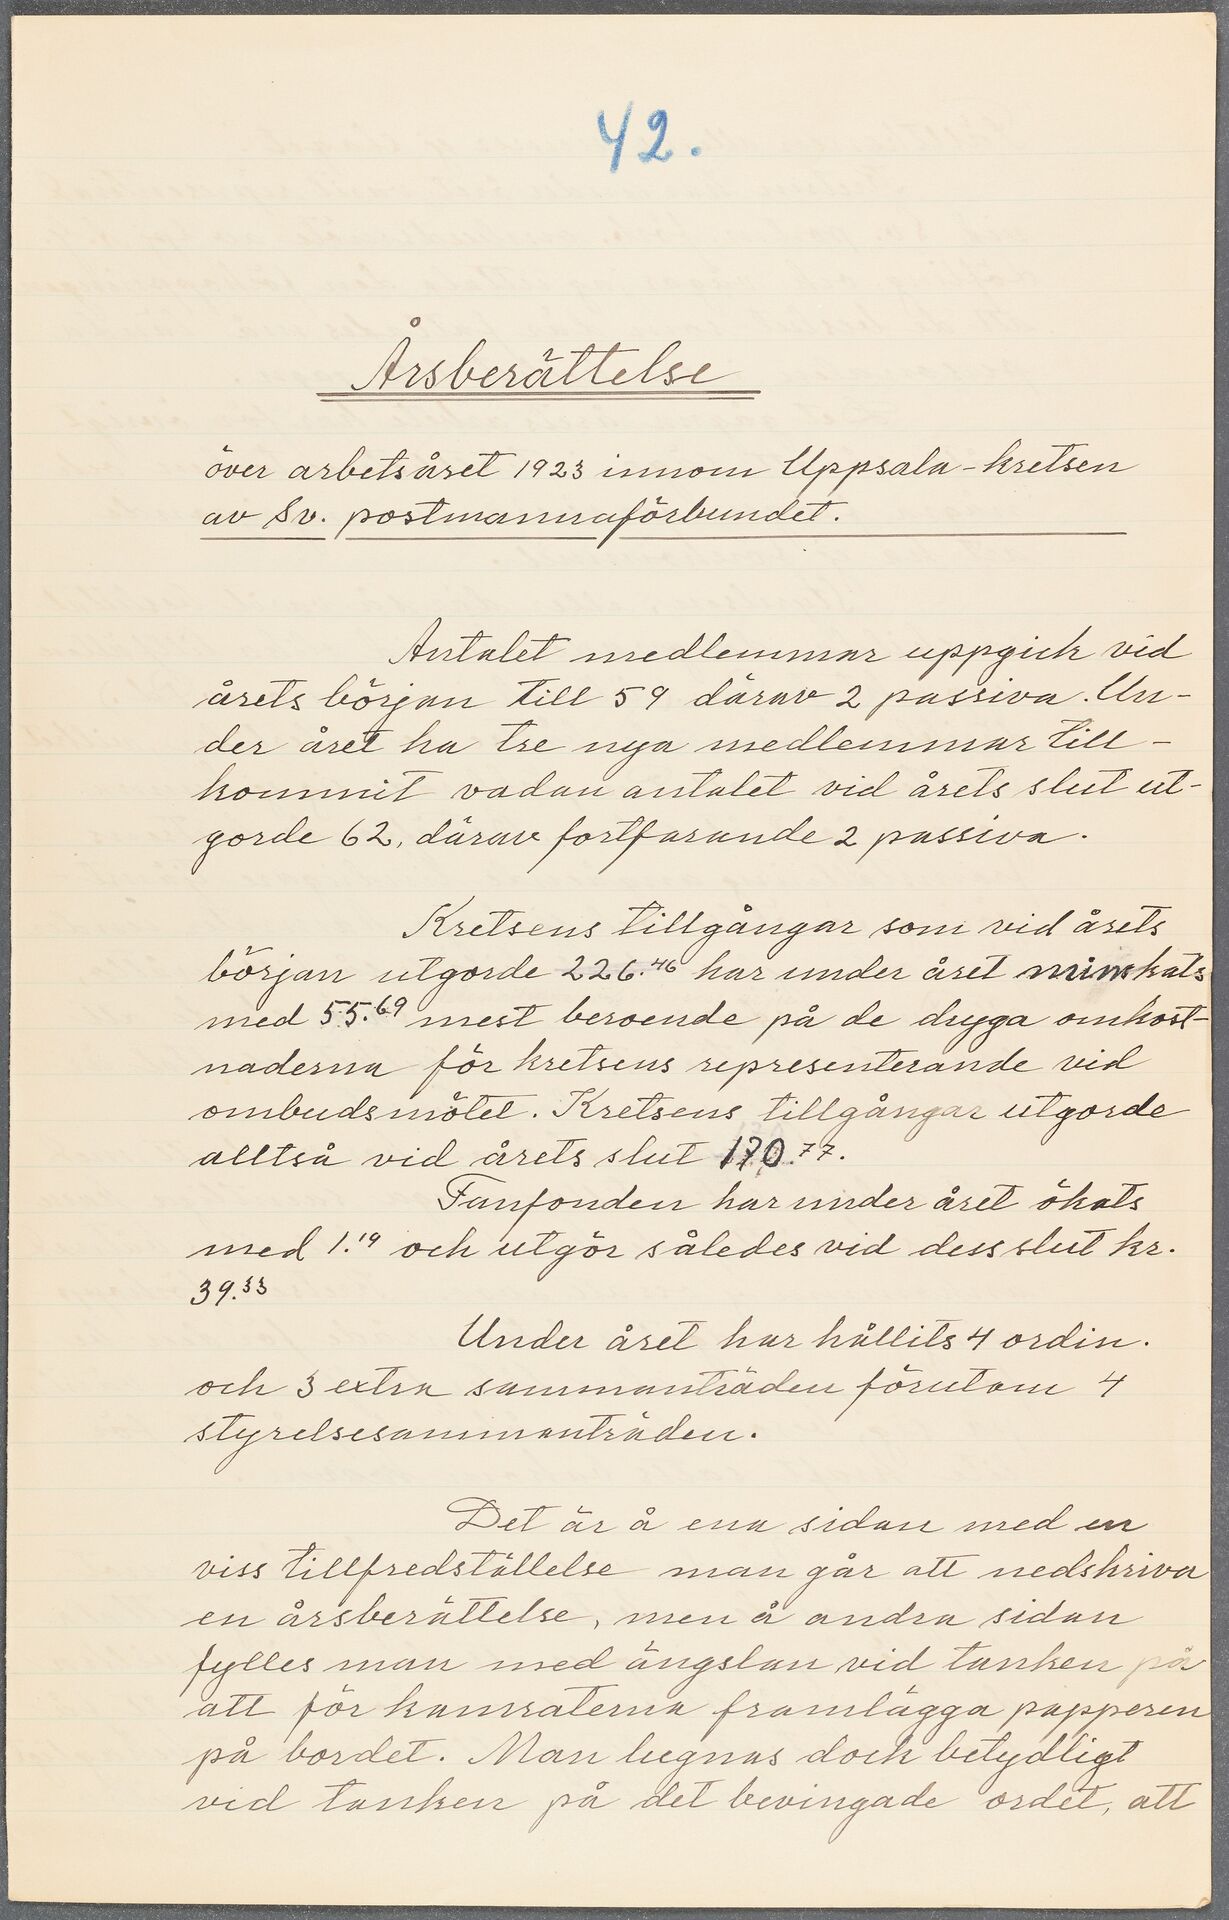 42.
Årsberättelse
över arbetsåret 1923 innom Uppsala-kretsen
av Sv. postmannaförbundet.
Antalet medlemmar uppgick vid
årets början till 59 därav 2 passiva. Un-
der året ha tre nya medlemmar till-
kommit vadan antalet vid årets slut ut-
gorde 62, därav fortfarande 2 passiva.
Kretsens tillgångar som vid årets
början utgorde 226.46 har under året minskats
med 55.69 mest beroende på de dryga omkost-
naderna för kretsens representerande vid
ombudsmötet. Kretsens tillgångar utgorde
alltså vid årets slut 170.77.
Fanfonden har under året ökats
med 1.19 och utgör således vid dess slut kr.
39.33
Under året har hållits 4 ordin.
och 3 extra sammanträden förutom 4
styrelsesammanträden.
Det är å ena sidan med en
viss tillfredställelse man går att nedskriva
en årsberättelse, men å andra sidan
fylles man med ängslan vid tanken på
att för kamraterna framlägga papperen
på bordet. Man lugnas dock betydligt
vid tanken på det bevingade ordet, att